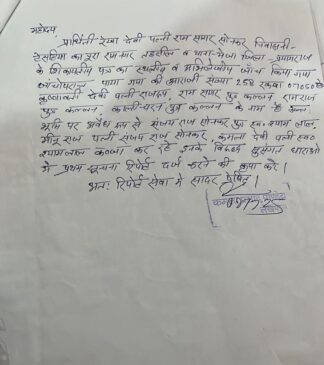 महोदय
प्रार्थिनी रेखा देवी पत्नी राम सागर सोनकर निवासनी
का पूरा राम नगर तहसील व थाना मेजा जिला प्रयागराज
के शिकायती पत्र का स्थलीय व अभिलेखीय जांच किया गया
पाया गया की आराजी संख्या 258 रकबा
देवी पत्नी राजरूप राम सागर पुत्र कल्लन राम राज
पुत्र कल्लन पुत्र कल्लन के नाम है उक्त
भूमि पर अवैध रूप से संजय राज सोनकर पुत्र स्व० श्याम लाल,
पत्नी संजय राज सोनकर, कमला देवी पत्नी स्व०
श्यामलाल कब्जा कर रहे इनके विरुद्ध सुसंगत धाराओ
मे प्रथम सूचना रिपोर्ट दर्ज करने की कृपा करे।
अतः रिपोर्ट सेवा मे सादर प्रेषित